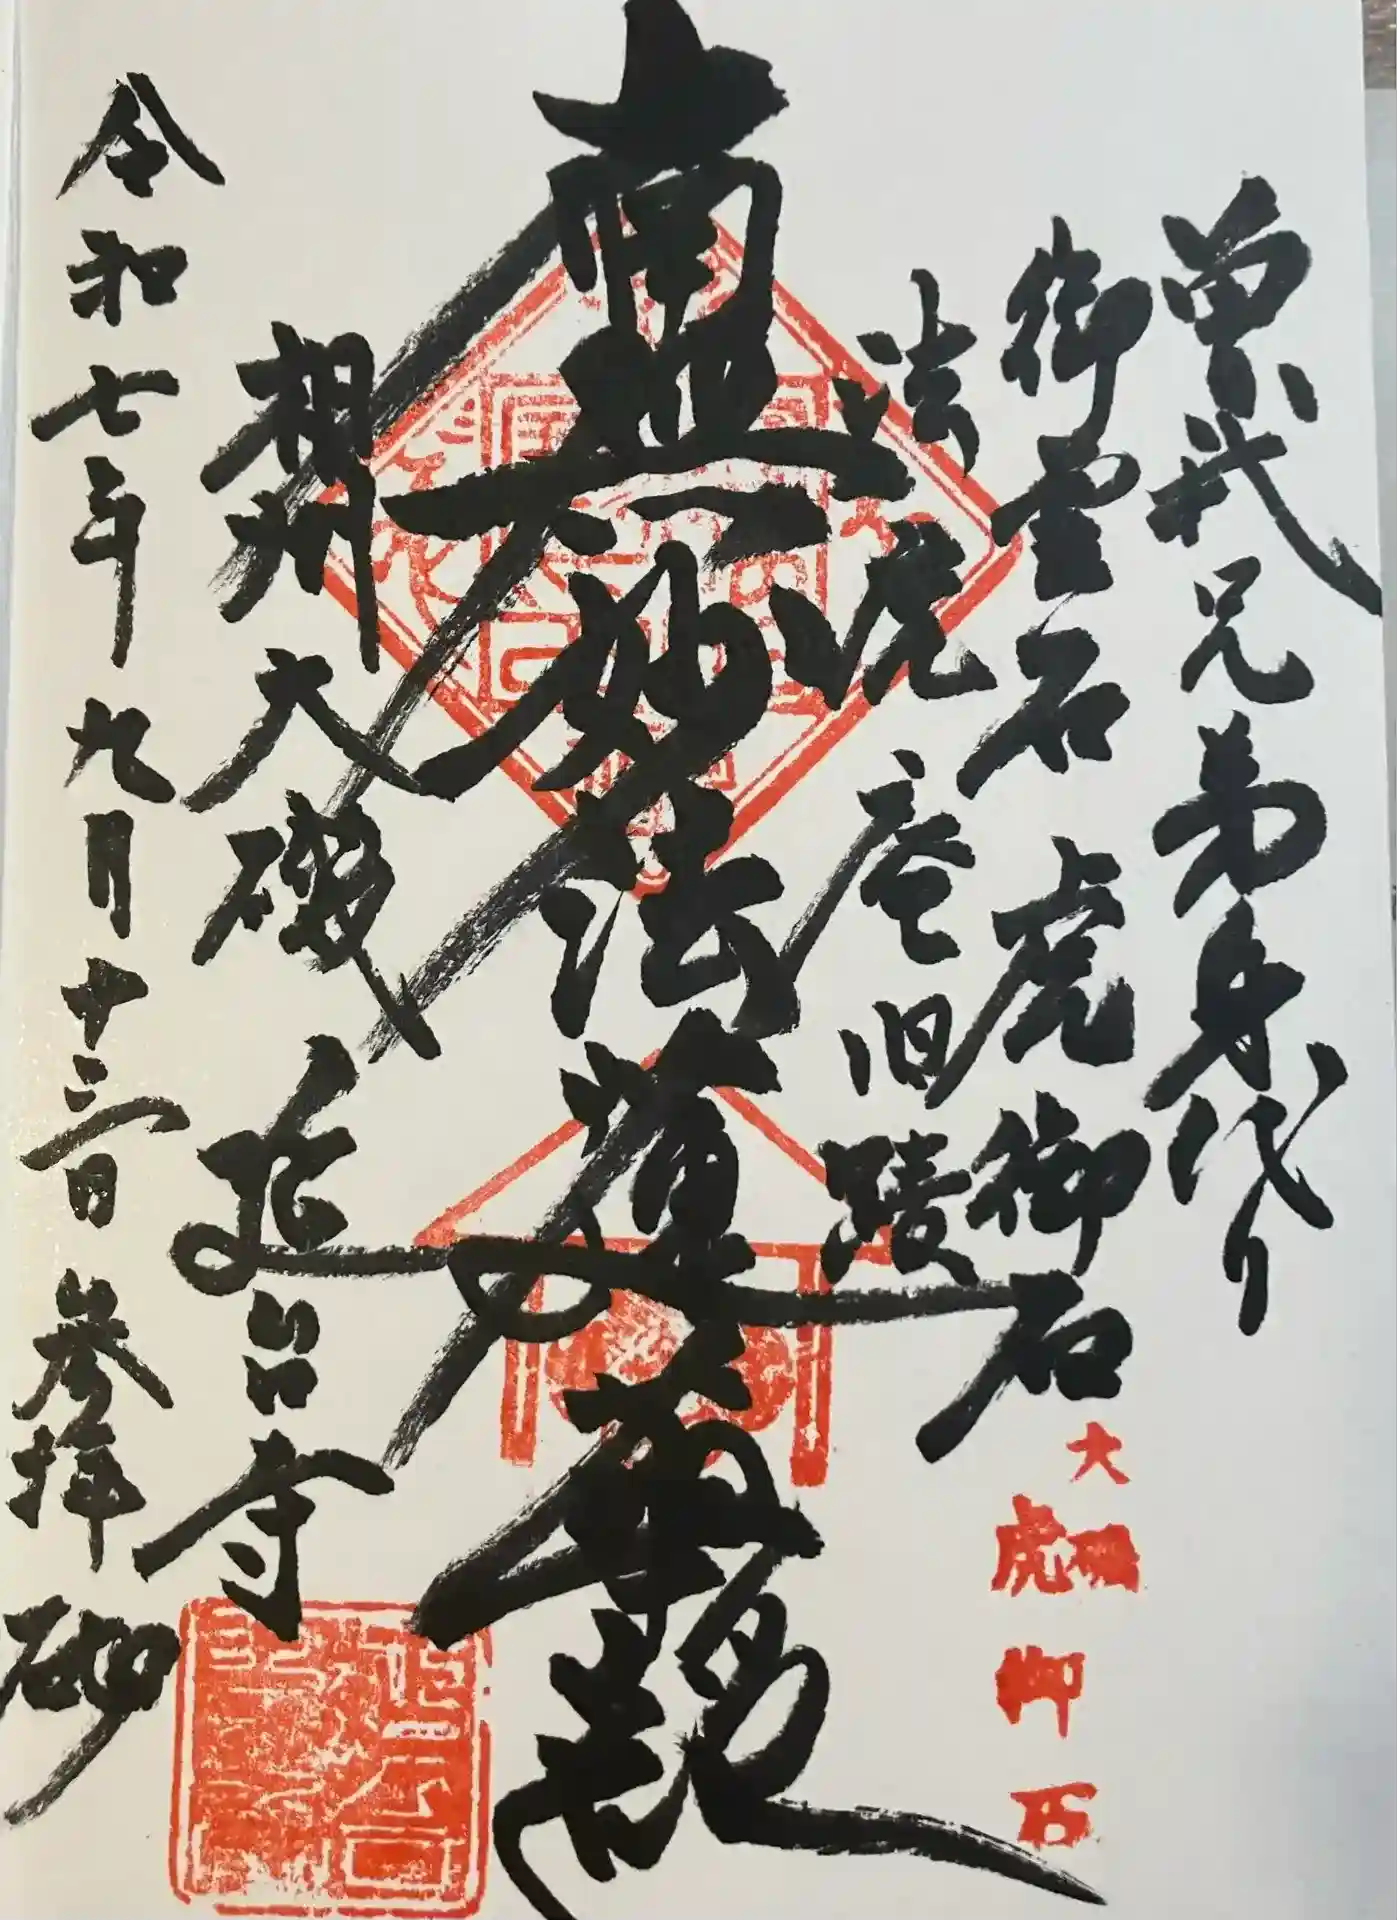 曽我兄弟身代り
御霊石 虎御石
大磯
虎御石
法虎庵旧蹟
南無妙法蓮華経
相州大磯 延台寺
令和七年九月十三日 参拝